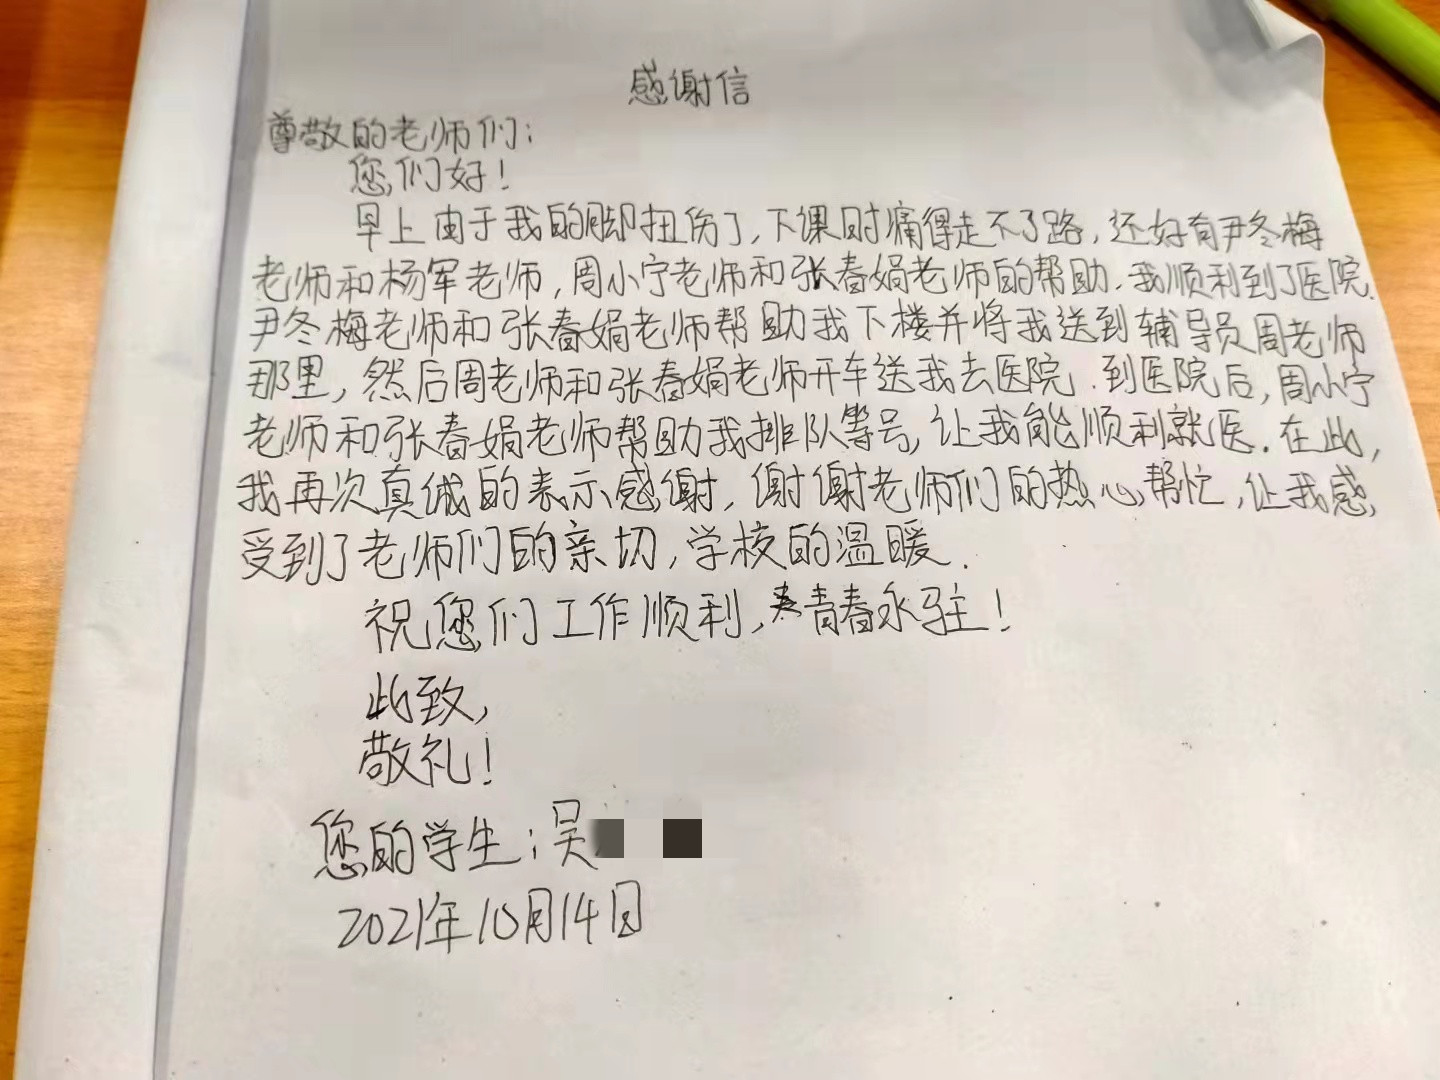 感谢信
尊敬的老师们：
您们好！
早上由于我的脚扭伤了，下课时痛得走不了路，还好有尹冬梅
老师和杨军老师，周小宁老师和张春娟老师的帮助.我顺利到了医院.
尹冬梅老师和张春娟老师帮助我下楼并将我送到辅导员周老师
那里，然后周老师和张春娟老师开车送我去医院.到医院后，周小宁
老师和张春娟老师帮助我排队等号，让我能顺利就医.在此，
我再次真诚的表示感谢，谢谢老师们的热心帮忙，让我感
受到了老师们的亲切，学校的温暖.
祝您们工作顺利，青春永驻！
此致，
敬礼！
您的学生：吴
2021年10月14日